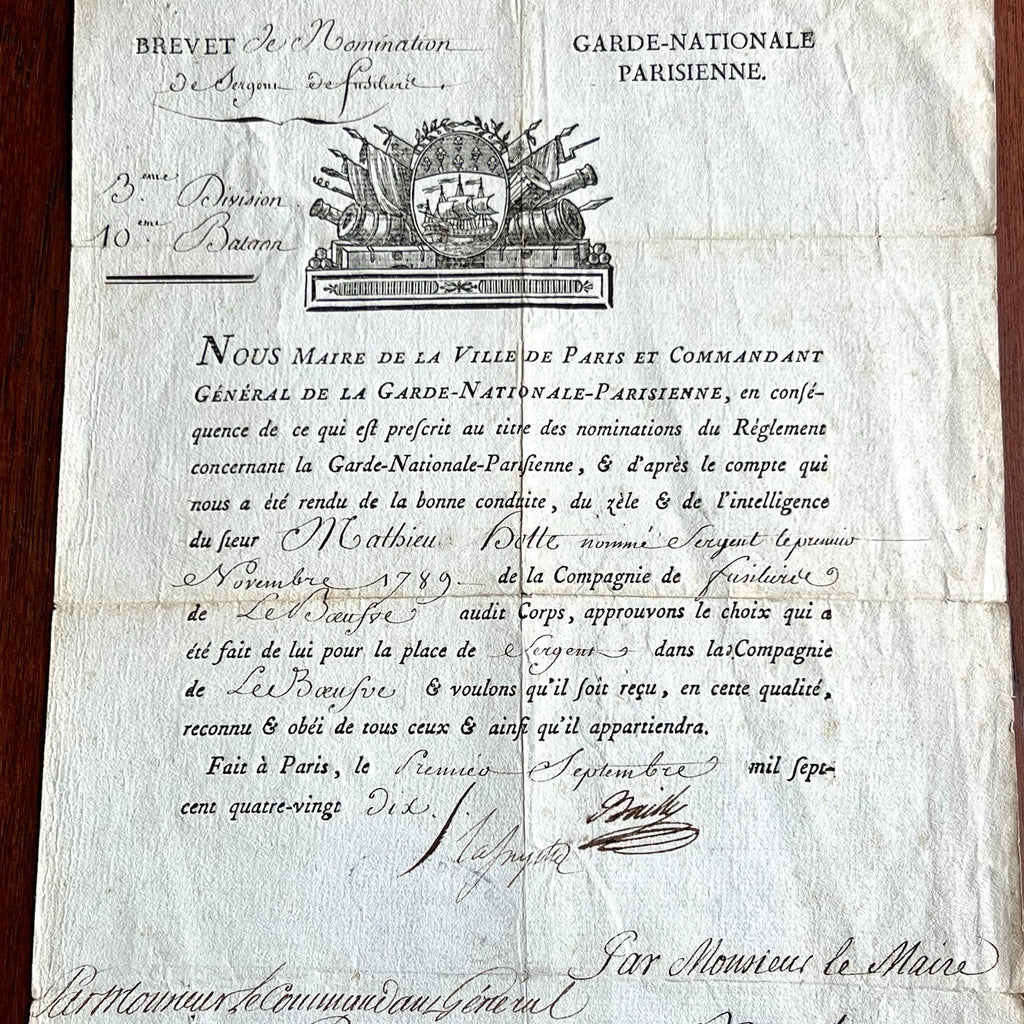 BREVET de Nomination
de Sergent de fusiliers.
GARDE-NATIONALE
PARISIENNE.
3.eme Division
10.eme Bataon
NOUS MAIRE DE LA VILLE DE PARIS ET COMMANDANT
GÉNÉRAL DE LA GARDE-NATIONALE-PARISIENNE, en conſé-
quence de ce qui eſt preſcrit au titre des nominations du Règlement
concernant la Garde-Nationale-Pariſienne, & d'après le compte qui
nous a été rendu de la bonne conduite, du zèle & de l'intelligence
du ſieur Mathieu Hotte nommé Sergent le premier
Novembre 1789 de la Compagnie de fusiliers
de Le Bœufve audit Corps, approuvons le choix qui a
été fait de lui pour la place de Sergent dans la Compagnie
de Le Bœufve & voulons qu'il ſoit reçu, en cette qualité,
reconnu & obéi de tous ceux & ainſi qu'il appartiendra.
Fait à Paris, le Premier Septembre mil ſept-
cent quatre-vingt dix.
Bailly
Lafayette
Par Monsieur le Maire
Par Monsieur Le Commandant Général